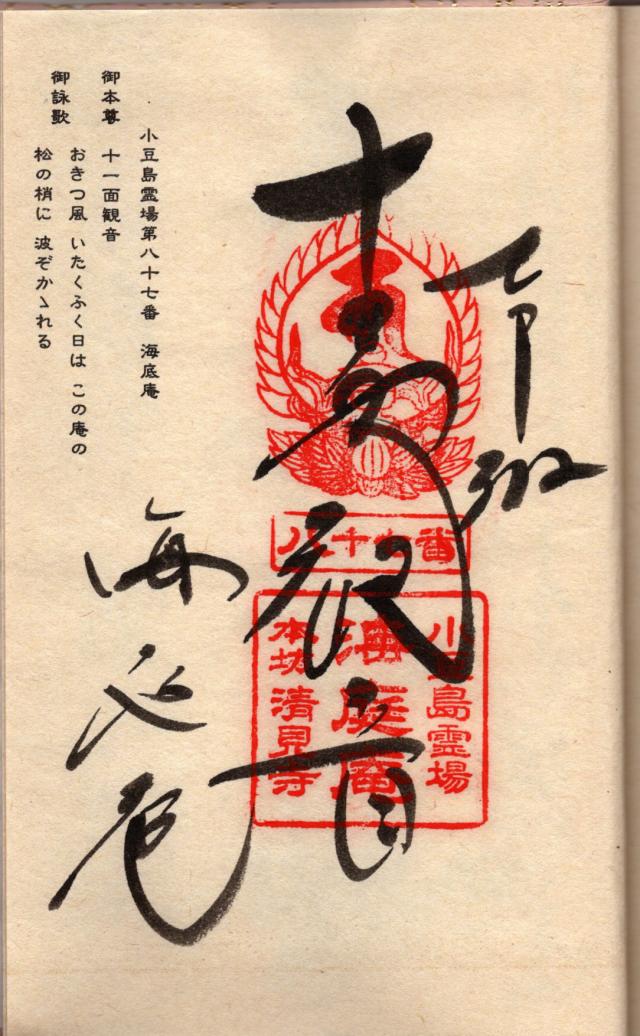 奉拝
十一面観音
海底庵
八十七番
小豆島霊場
海庭庵
本坊清見寺
小豆島霊場第八十七番 海底庵
御本尊 十一面観音
御詠歌 おきつ風 いたくふく日は この庵の
松の梢に 波ぞかゝれる